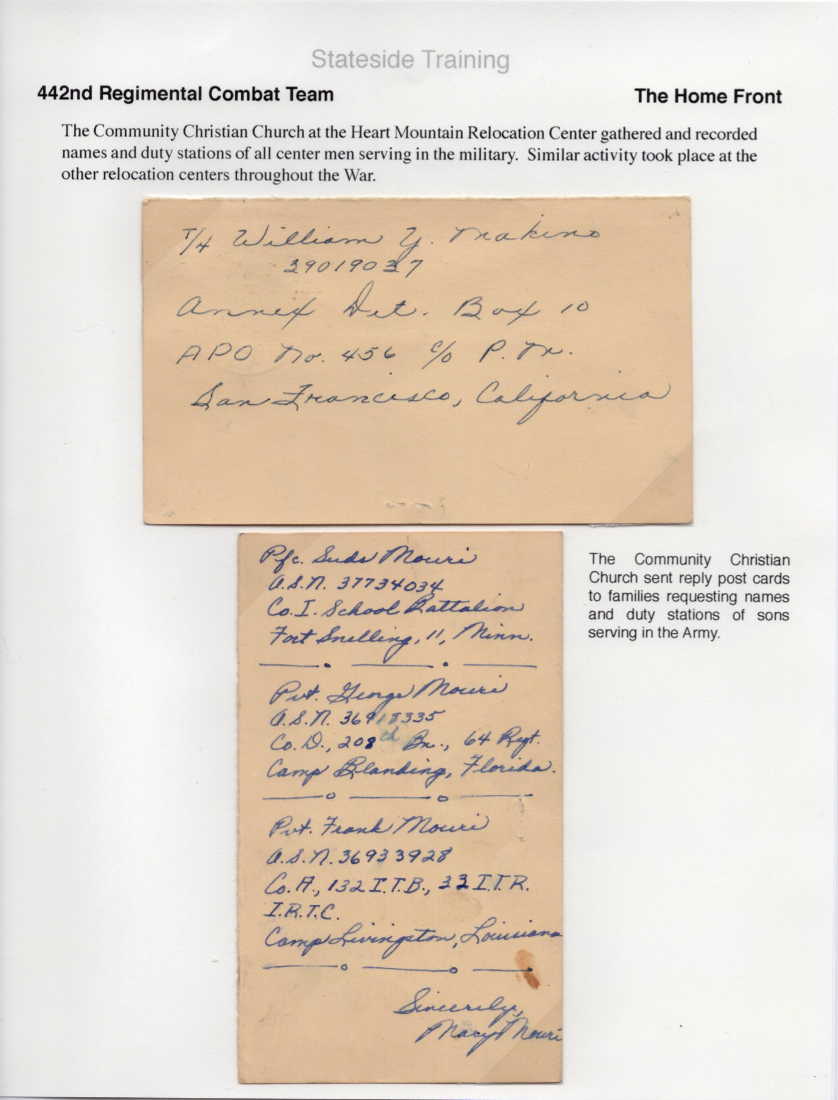 Stateside Training
442nd Regimental Combat Team
The Home Front
The Community Christian Church at the Heart Mountain Relocation Center gathered and recorded
names and duty stations of all center men serving in the military. Similar activity took place at the
other relocation centers throughout the War.
T/4 William Y. Makino
39019037
Annex Det. Box 10
APO No. 456 c/o P.M.
San Francisco, California
Pfc. Suds Mouri
A.S.N. 37734034
Co. I. School Battalion
Fort Snelling, 11, Minn.
Pvt. George Mouri
A.S.N. 36918335
Co. D., 208th Bn., 64 Regt.
Camp Blanding, Florida.
Pvt. Frank Mouri
A.S.N. 36933928
Co. A., 132 I.T.B., 33 I.T.R.
I.R.T.C.
Camp Livingston, Louisiana
Sincerely,
Mary Mouri
The Community Christian
Church sent reply post cards
to families requesting names
and duty stations of sons
serving in the Army.